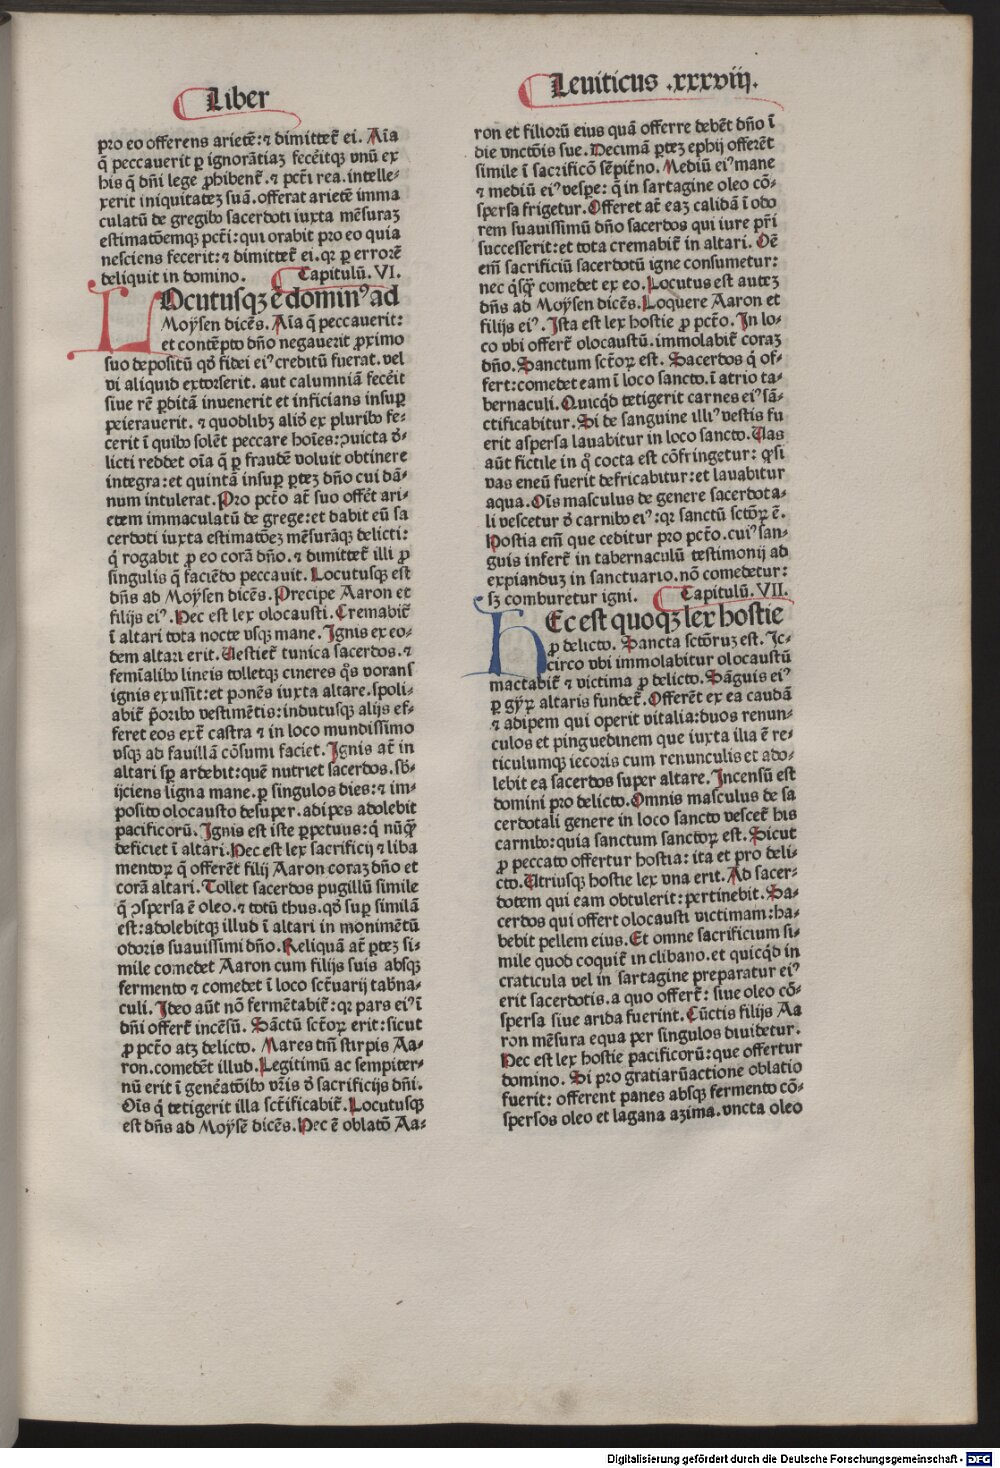 Liber
pro eo offerens arietē: ⁊ dimittet̄ ei. Aīa
q̄ peccauerit ꝑ ignorātiaꝫ fecēitqꝫ vnū ex
his q̄ dn̄i lege ꝓhibent̄. ⁊ pct̄i rea. intelle⸗
xerit iniquitateꝫ suā. offerat arietē imma
culatū de gregibꝰ sacerdoti iuxta mēsuraꝫ
estimatōemqꝫ pct̄i: qui orabit pro eo quia
nesciens fecerit: ⁊ dimittet̄ ei. qꝛ ꝑ errorē
deliquit in domino. Capitulū. VI.
LOcutusqꝫ ē dominꝰ ad
Moÿsen dicēs. Aīa q̄ peccauerit:
et contēpto dn̄o negauerit ꝓximo
suo depositū qḋ fidei eiꝰ creditū fuerat. vel
vi aliquid extorserit. aut calumniā fecēit
siue rē ꝑditā inuenerit et inficians insuꝑ
peierauerit. ⁊ quodlibꝫ aliḋ ex pluribꝰ fe⸗
cerit ī quibꝰ solēt peccare hoīes: ꝯuicta ḋ⸗
licti reddet oīa q̄ ꝑ fraudē voluit obtinere
integra: et quintā insuꝑ ꝑteꝫ dn̄o cui dā⸗
num intulerat. Pro pct̄o at̄ suo offēt ari⸗
etem immaculatū de grege: et dabit eū sa
cerdoti iuxta estimatōeꝫ mēsurāqꝫ delicti:
q̄ rogabit ꝓ eo corā dn̄o. ⁊ dimittet̄ illi ꝓ
singulis q̄ faciēdo peccauit. Locutusqꝫ est
dn̄s ad Moÿsen dicēs. Precipe Aaron et
filijs eiꝰ. Hec est lex olocausti. Cremabit̄
ī altari tota nocte vsqꝫ mane. Ignis ex eo⸗
dem altari erit. Uestiet̄ tunica sacerdos. ⁊
femīalibꝰ lineis tolletqꝫ cineres q̄s vorans
ignis exussit: et ponēs iuxta altare. spoli⸗
abit̄ p̄oribꝰ vestimētis: indutusqꝫ alijs ef⸗
feret eos ext̄ castra ⁊ in loco mundissimo
vsqꝫ ad fauillā cōsumi faciet. Ignis at̄ in
altari sꝑ ardebit: quē nutriet sacerdos. sb̄⸗
ijciens ligna mane. ꝑ singulos dies: ⁊ im⸗
posito olocausto desuper. adipes adolebit
pacificorū. Ignis est iste ꝑpetuus: q̄ nūq̄ꝫ
deficiet ī altari. Hec est lex sacrificij ⁊ liba
mentoꝝ q̄ offerēt filij Aaron coraꝫ dn̄o et
corā altari. Tollet sacerdos pugillū simile
q̄ ꝯspersa ē oleo. ⁊ totū thus. qḋ suꝑ similā
est: adolebitqꝫ illud ī altari in monimētū
odoris suauissimi dn̄o. Reliquā at̄ ꝑteꝫ si⸗
mile comedet Aaron cum filijs suis absqꝫ
fermento ⁊ comedet ī loco sct̄uarij tabn̄a⸗
culi. Ideo aūt nō fermētabit̄: qꝛ pars eiꝰ ī
dn̄i offert̄ incēsū. Sāctū sct̄oꝝ erit: sicut
ꝓ pct̄o atqꝫ delicto. Mares tm̄ stirpis Aa⸗
ron. comedēt illud. Legitimū ac sempiter⸗
nū erit ī genēatōibꝰ vr̄is ḋ sacrificijs dn̄i.
Oīs q̄ tetigerit illa sct̄ificabit̄. Locutusqꝫ
est dn̄s ad Moÿsē dicēs. Hec ē oblatō Aa⸗
Leuiticus .xxxviij.
ron et filiorū eius quā offerre debēt dn̄o ī
die vnctōis sue. Decimā ꝑteꝫ ephij offerēt
simile ī sacrificō sēpiēno. Mediū eiꝰ mane
⁊ mediū eiꝰ vespe: q̄ in sartagine oleo cō⸗
spersa frigetur. Offeret at̄ eaꝫ calidā ī odo
rem suauissimū dn̄o sacerdos qui iure pr̄i
successerit: et tota cremabit̄ in altari. Oē
em̄ sacrificiū sacerdotū igne consumetur:
nec q̄sq̄ꝫ comedet ex eo. Locutus est auteꝫ
dn̄s ad Moÿsen dicēs. Loquere Aaron et
filijs eiꝰ. Ista est lex hostie ꝓ pct̄o. In lo⸗
co vbi offert̄ olocaustū. immolabit̄ coraꝫ
dn̄o. Sanctum sct̄oꝝ est. Sacerdos q̄ of⸗
fert: comedet eam ī loco sancto. ī atrio ta⸗
bernaculi. Quicq̄d tetigerit carnes eiꝰ sā⸗
ctificabitur. Si de sanguine illiꝰ vestis fu
erit aspersa lauabitur in loco sancto. Uas
aūt fictile in q̊ cocta est cōfringetur: ꝙ si
vas eneū fuerit defricabitur: et lauabitur
aqua. Oīs masculus de genere sacerdota⸗
li vescetur ḋ carnibꝰ eiꝰ: qꝛ sanctū sct̄oꝝ ē.
Hostia em̄ que ceditur pro pct̄o. cuiꝰ san⸗
guis infert̄ in tabernaculū testimonij ad
expianduꝫ in sanctuario. nō comedetur:
sꝫ comburetur igni. Capitulū. VII.
HEc est quoqꝫ lex hostie
ꝓ delicto. Sancta sct̄oruꝫ est. Ic⸗
circo vbi immolabitur olocaustū
mactabit̄ ⁊ victima ꝓ delicto. Sāguis eiꝰ
ꝑ gyꝝ altaris fundet̄. Offerēt ex ea caudā
⁊ adipem qui operit vitalia: duos renun⸗
culos et pinguedinem que iuxta ilia ē re⸗
ticulumqꝫ iecoris cum renunculis et ado⸗
lebit ea sacerdos super altare. Incensū est
domini pro delicto. Omnis masculus de sa
cerdotali genere in loco sancto vescet̄ his
carnibꝰ: quia sanctum sanctoꝝ est. Sicut
ꝓ peccato offertur hostia: ita et pro deli⸗
cto. Utriusqꝫ hostie lex vna erit. Ad sacer⸗
dotem qui eam obtulerit: pertinebit. Sa⸗
cerdos qui offert olocausti victimam: ha⸗
bebit pellem eius. Et omne sacrificium si⸗
mile quod coquit̄ in clibano. et quicq̄d in
craticula vel in sartagine preparatur eiꝰ
erit sacerdotis. a quo offert̄: siue oleo cō⸗
spersa siue arida fuerint. Cūctis filijs Aa
ron mēsura equa per singulos diuidetur.
Hec est lex hostie pacificorū: que offertur
domino. Si pro gratiarūactione oblatio
fuerit: offerent panes absqꝫ fermento cō⸗
spersos oleo et lagana azima. vncta oleo
Digitalisierung gefördert durch die Deutsche Forschungsgemeinschaft - DFG